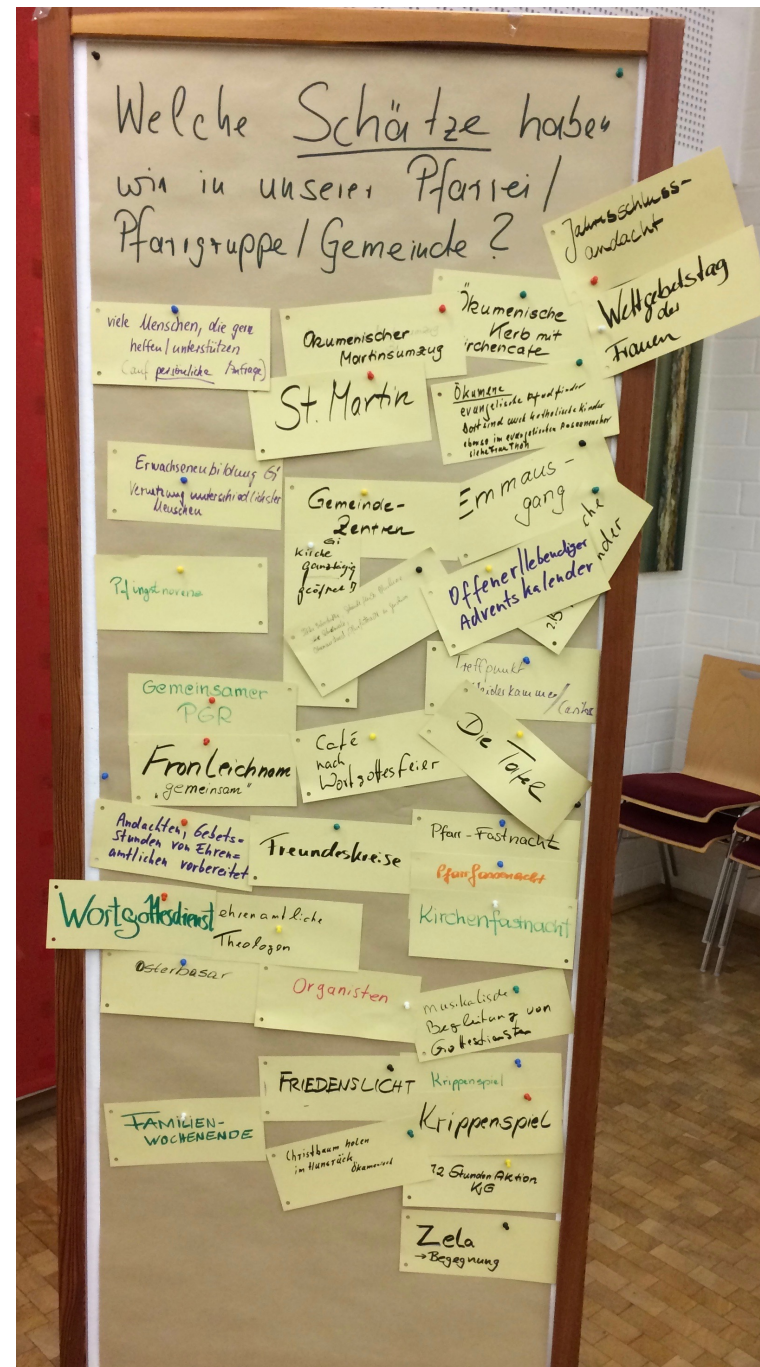 Welche Schätze haben
wir in unserer Pfarrei/
Pfarrgruppe/Gemeinde?
Jahresschluss-
andacht
Weltgebetstag
der
Frauen
viele Menschen, die gern
helfen/unterstützen
(auf persönliche Anfrage)
Ökumenischer
Martinsumzug
Ökumenische
Kerb mit
irchencafe
St. Martin
Ökumene
evangelische Pfadfinder
Dort sind auch katholische Kinder
ebenso im evangelischen
siehe Frau Thon
Erwachsenenbildung Gi
Vernetzung unterschiedlichster
Menschen
Gemeinde-
Zentren
Emmaus-
gang
che
nder
Gi
Kirche
ganztägig
geöffnet!!
Offener/lebendiger
Adventskalender
Pfingstnovene
Gemeinsamer
PGR
Treffpunkt
Kleiderkammer/
Caritas
Fronleichnam
"gemeinsam"
Café
nach
Wortgottesfeier
Die Tafel
Andachten, Gebets-
Stunden von Ehren=
amtlichen vorbereitet
Freundeskreise
Pfarr-Fastnacht
Pfarrfassenacht
Wortgottesdienst
ehrenamtliche
Theologen
Kirchenfastnacht
Osterbasar
Organisten
musikalische
Begleitung von
Gottesdiensten
FRIEDENSLICHT
Krippenspiel
Krippenspiel
FAMILIEN-
WOCHENENDE
Christbaum holen
im Hunsrück
Ökumenisch
72 Stunden Aktion
KJG
Zela
→ Begegnung